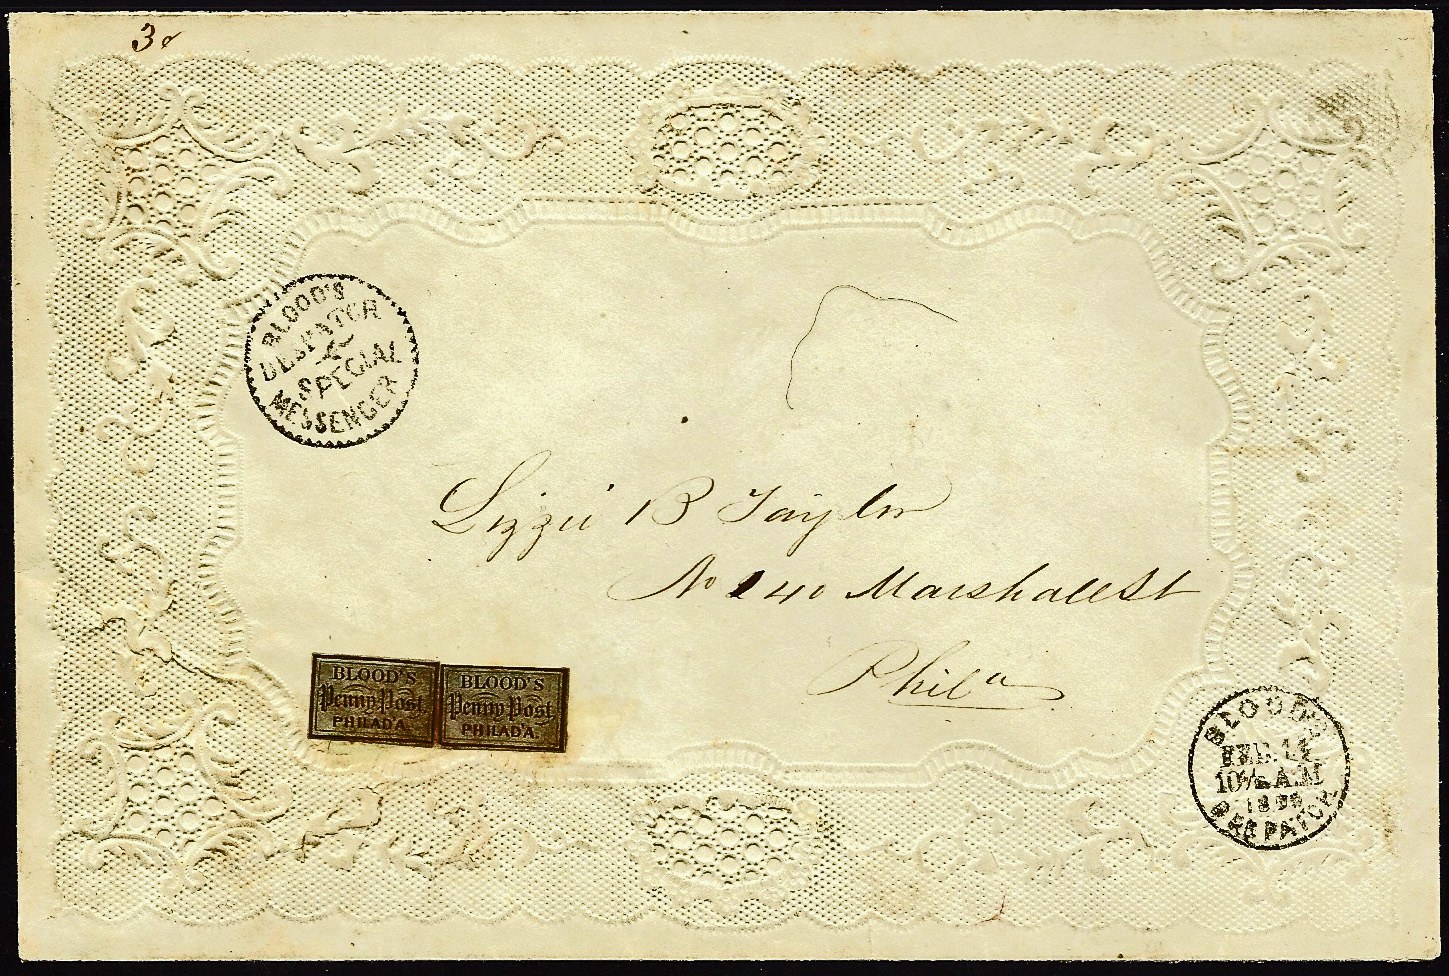 3c
BLOOD'S
DESPATCH
&
SPECIAL
MESSENGER
Lizzie B Taylor
No 240 Marshall St
Phila
BLOOD'S
Penny Post
PHILADA
BLOOD'S
Penny Post
PHILADA
BLOOD'S
FEB. 14
10½ A.M
DESPATCH